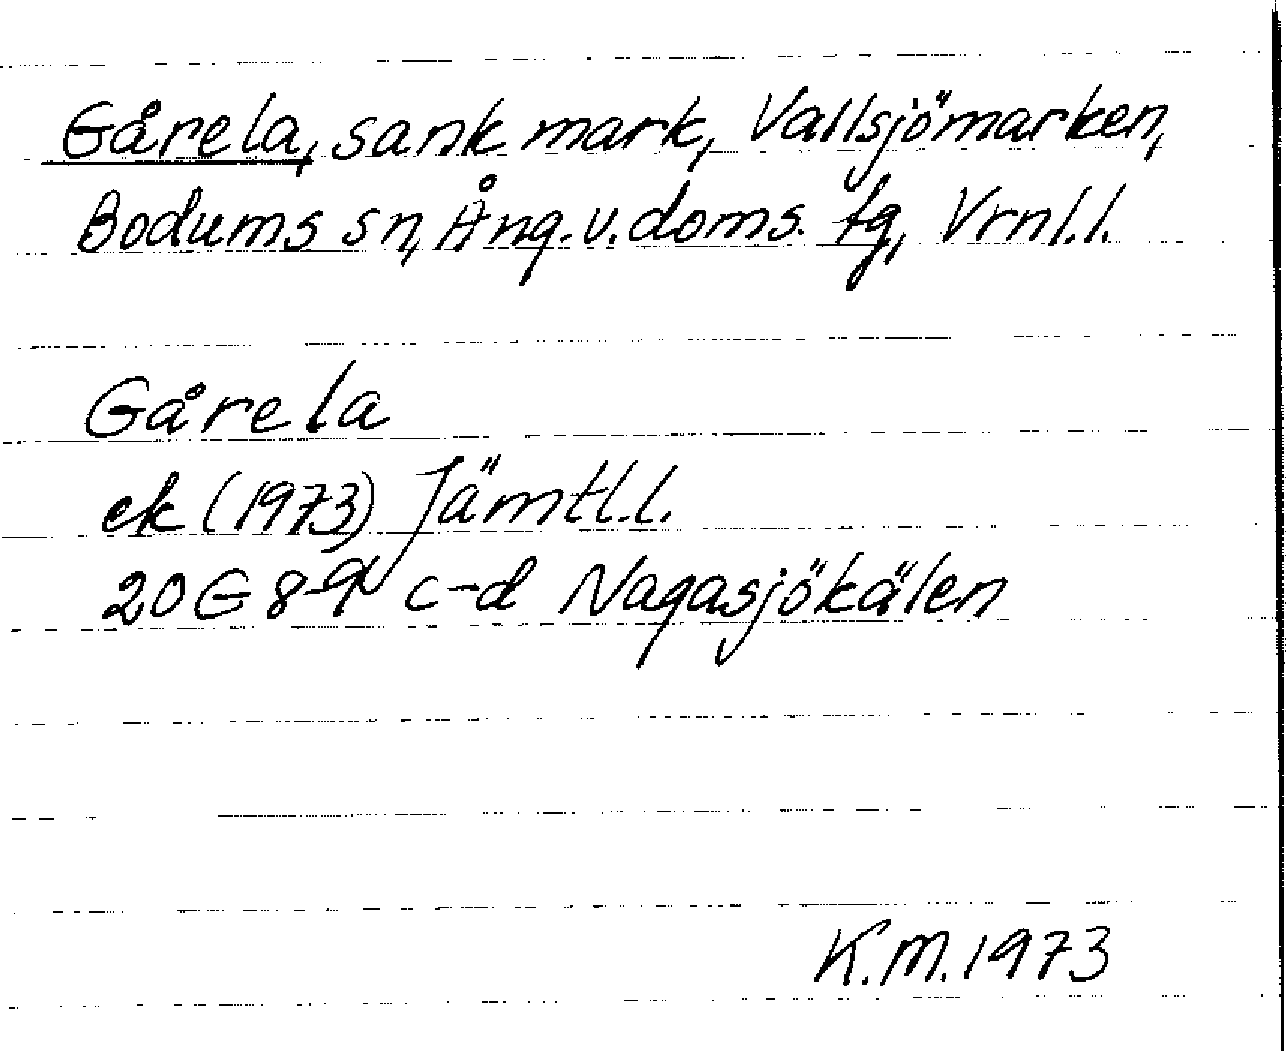 Gårela, sank mark, Vallsjömarken,
Bodums sn, Ång. v. doms. tg, Vrnl. l.
Gårela
ek (1973) Jämtl. l.
20 G 8-9 c-d Nagasjökälen
K. M. 1973